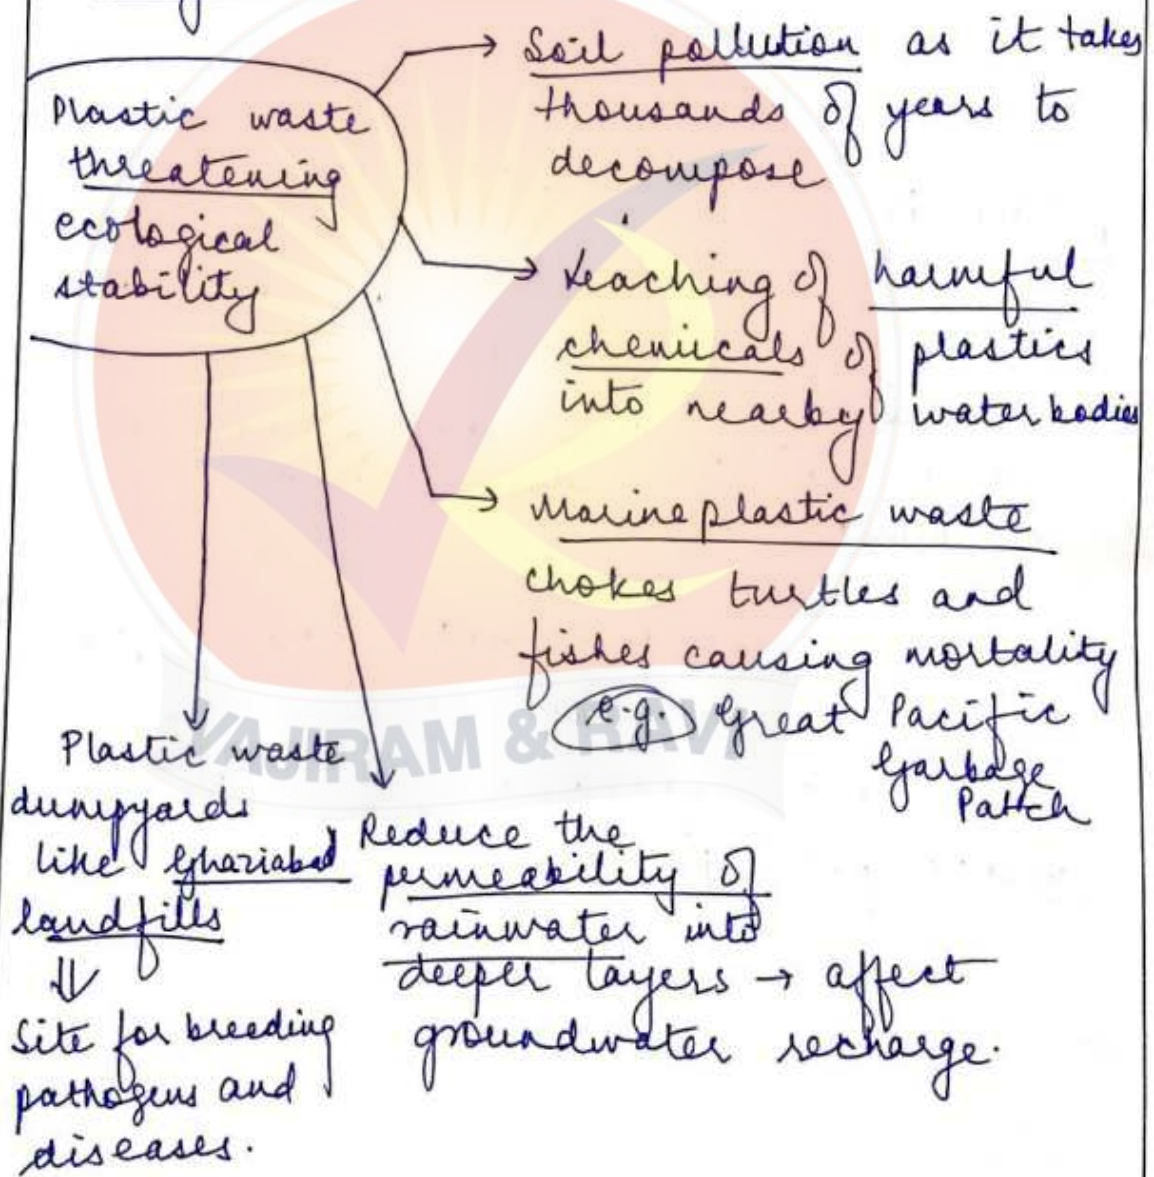 Plastic waste
threatening
ecological
stability
Soil pollution as it takes
thousands of years to
decompose
Leaching of harmful
chemicals of plastics
into nearby waterbodies
Marine plastic waste
chokes turtles and
fishes causing mortality
e.g. Great Pacific
Garbage
Patch
Plastic waste
dumpyards
like Ghaziabad
landfills
⇓
Site for breeding
pathogens and
diseases.
Reduce the
permeability of
rainwater into
deeper layers → affect
groundwater recharge.
VAJIRAM & RAVI